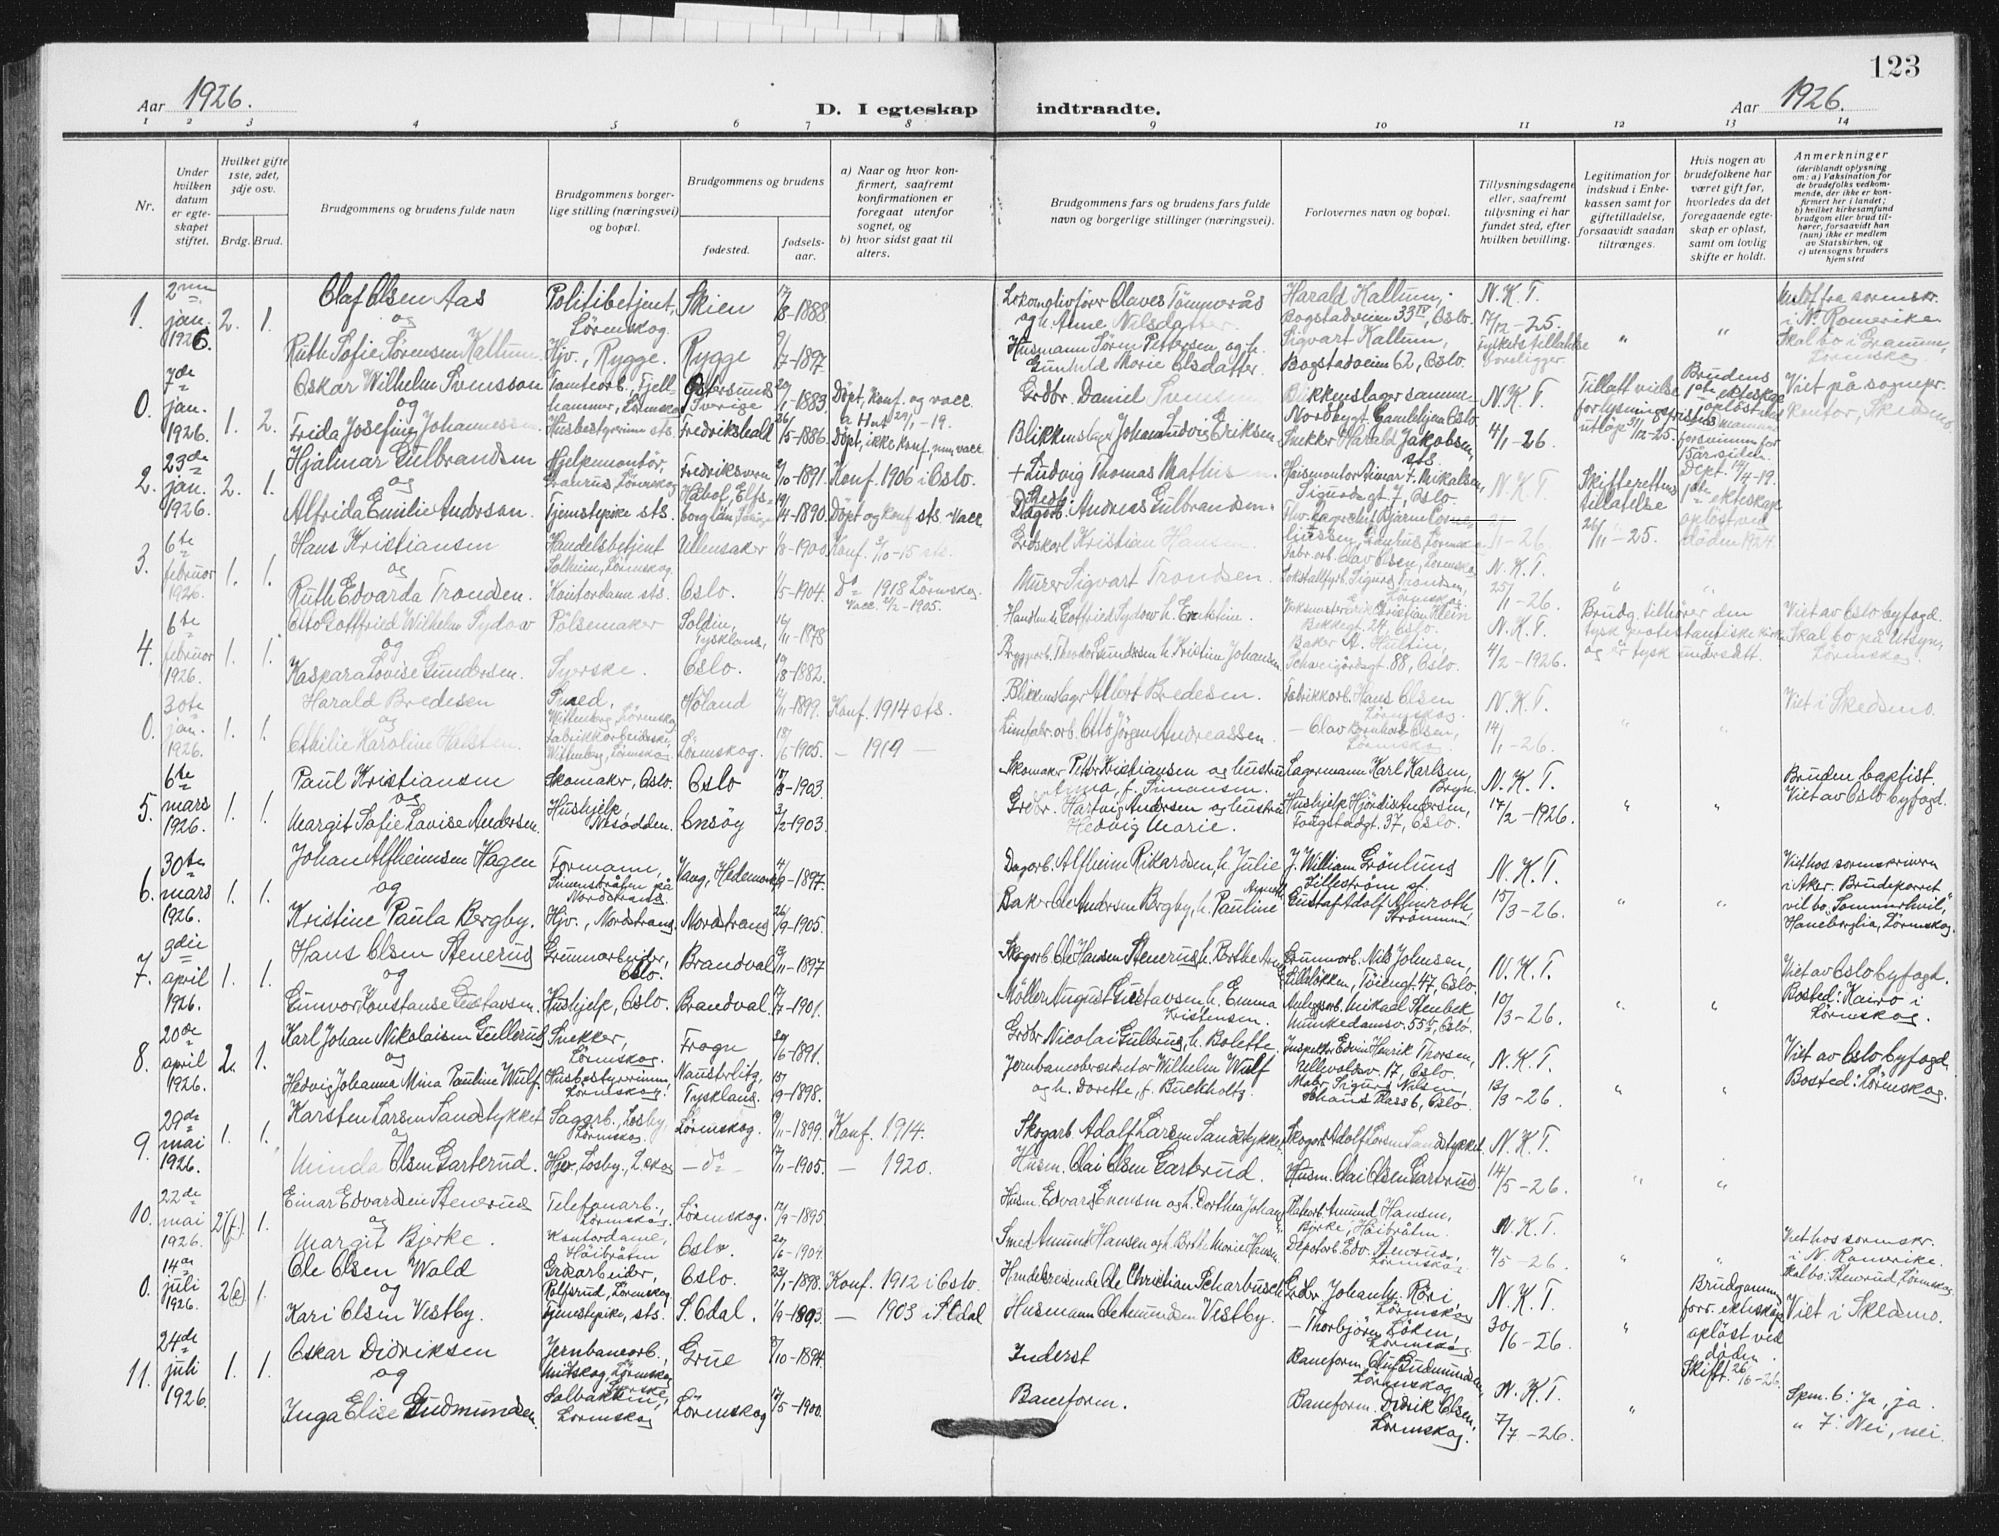 123
Aar 1926.
D. I egteskap indtraadte.
Aar 1926.
1 2 3 4 5 6 7 8 9 10 11 12 13 14
Nr.
Under hvilken datum er egteskapet stiftet.
Hvilket gifte 1ste, 2det, 3dje osv.
Brdg. Brud.
Brudgommens og brudens fulde navn
Brudgommens borgerlige stilling (næringsvei) og bopæl.
Brudgommens og brudens
fødested.
fødselsaar.
a) Naar og hvor konfirmert, saafremt konfirmationen er foregaat utenfor sognet, og
b) hvor sidst gaat til alters.
Brudgommens fars og brudens fars fulde navn og borgerlige stillinger (næringsvei).
Forlovernes navn og bopæl.
Tillysningsdagene eller, saafremt tillysning ei har fundet sted, efter hvilken bevilling.
Legitimation for indskud i Enkekassen samt for giftetilladelse, forsaavidt saadan tiltrænges.
Hvis nogen av brudefolkene har været gift før, hvorledes da det foregaaende egteskap er opløst, samt om lovlig skifte er holdt.
Anmerkninger
(deriblandt oplysning om: a) Vaksination for de brudefolks vedkommende, der ikke er konfirmert her i landet;
b) hvilket kirkesamfund brudgom eller brud tilhører, forsaavidt han (hun) ikke er medlem av Statskirken, og
c) utensogns bruders hjemsted
1. 2nn jan. 1926. 2. 1. Olaf Olsen Aas Politibetjent, Lørenskog. Skien 17/8-1888 Lokomotivfører Olaves Tømmerås og h. Anne Nilsdatter Harald Kallum, Bogstadveien 33 IV, Oslo. N.K.T. 17/12-25.
og
Ruth Sofie Sørensen Kallum. Hjv., Rygge. Rygge 9/7-1897 Husmann Søren Pettersen og h. Gunhild Marie Olsdatter. Sigvart Kallum, Bogstadveien 62, Oslo. Fylkets tillatelse foreligger. " " i N. Romerike. Skal bo i Granum, Lørenskog
0. 7de jan. 1926. 1. 2. Oskar Wilhelm Svensson Tomteorb., Fjellhammer, Lørenskog Østersund Sverige 20/1-1883 Døpt, konf. og vacc. Grdbr. Daniel Svensson Blikkenslager N.K.T. 4/1-26. Tillatt vielse utløp 31/12-25. Brudens 1ste ekteskap opløst Viet på sognepr. kontor, Skedsmo
og
Frida Josefine Johannessen Husbestyrerinne sts. Fredrikshald 26/5-1886. Døpt, ikke konf., men vacc. Blikkenslager Johan Ludvig Eriksen. Snekker Harald Jakobsen sts.
2. 23de jan. 1926. 2. 1. Hjalmar Gulbrandsen Hjelpemontør, Fredriksvern 9/10-1891 Konf. 1906 i Oslo. + Ludvig Thomas Mathisen Sigurdsgt. 7, Oslo. N.K.T. Skifterettens tillatelse 26/11-25. 1ste ekteskap opløst ved døden 1924.
og
Alfrida Emilie Anderson. Tjenestepike sts. 19/4-1890 Døpt og konf. sts. Vacc. Dagarb. Andreas Gulbrandsen.
3. 6te februar 1926. 1. 1. Hans Kristiansen Handelsbetjent Solheim, Lørenskog Ullensaker 1/8-1900 Konf. 3/10-15 sts. Grdskarl Kristian Hansen. Fabr. arb. Olav Olsen, Lørenskog N.K.T. 25/1-26.
og
Ruth Edvarda Trondsen. Kontordame sts. Oslo. 1/5-1904. Do 1918 Lørenskog. Murer Sigvart Trondsen. Lørenskog. " "
4. 6te februar 1926. 1. 1. Otto Gottfried Wilhelm Sydow Pølsemaker Soldin, Tyskland, 16/11-1878 Gottfried Sydow h. Kristian Klein Bekkegt. 24, Oslo. N.K.T. 4/2-1926. Brudg. tilhører den tysk protestantiske kirke og er tysk undersått. Viet av Oslo byfogd. Skal bo på Utsyn, Lørenskog.
og
Kaspara Lovise Gundersen. Syerske. Oslo. 19/8-1882. Bryggerarb. Theodor Gundersen h. Kristine Johansen Baker A. Hultin, Schweigårdsgt. 88, Oslo.
0. 30te jan. 1926. 1. 1. Harald Bredesen Smed, Wittenberg, Lørenskog Høland 17/11-1899. Konf. 1914 sts. Blikkenslager Albert Bredesen. Fabrikkarb. Hans Olsen Lørenskog. N.K.T. 14/1-26. " " Viet i Skedsmo.
og
Othilie Karoline Halsten. Fabrikkarbeiderske Wittenberg, Lørenskog Lørenskog. 18/6-1905. – 1919 – Limfabr. arb. Otto Jørgen Andreassen. – Olav Bernhard Olsen, Lørenskog.
5. 6te mars 1926. 1. 1. Paul Kristiansen Skomaker, Oslo. Oslo 18/8-1903. Skomaker Peter Kristiansen og hustru Anna, f. Simonsen. Lagermann Karl Karlsen, Bryn. N.K.T. 17/2-1926. " " Bruden baptist. Viet av Oslo byfogd.
og
Margit Sofie Lovise Andersen. Hushjelp Nesodden. Onsøy 3/2-1903. Grdbr. Hartvig Andersen og hustru Hedvig Marie. Hushjelp Hjørdis Andersen, Tougstadgt. 37, Oslo.
6. 30te mars 1926. 1. 1. Johan Alfheimsen Hagen Formann, Nordstrand. Vang, Hedemark 4/9-1897. Dagarb. Alfheim Rikardsen, h. Julie J. William Grønlund Lillestrøm st. N.K.T. 15/3-26. " " Viet hos sorenskriveren i Aker. Brudeparret vil bo "Sommerhvil", Haneborglia, Lørenskog.
og
Kristine Paula Bergby. Hjv., Nordstrand. Nordstrand 26/9-1905. Baker Ole Andersen Bergby, h. Pauline Gustaf Adolf Almroth, Strømmen.
7. 3die april 1926. 1. 1. Hans Olsen Stenerud Grunnarbeider, Oslo. Brandval 9/11-1897 Skogarb. Ole Hansen Stenerud, h. Berthe Grunnarb. Nils Johnsen, Lilleløkken, Tøiengt. 47, Oslo. N.K.T. 10/3-26. " " Viet av Oslo byfogd. Bosted: Kairo i Lørenskog.
og
Gunvor Konstanse Gustavsen. Hushjelp, Oslo. Brandval. 17/7-1901. Møller August Gustavsen h. Emma Kristensen. Mikael Stenbek, Munkedamsv. 55b, Oslo.
8. 20de april 1926. 2. 1. Karl Johan Nikolaisen Gullerud Snekker, Lørenskog. Frogn 20/6-1891. Grdbr. Nicolai Gullerud, h. Bolette. Inspektør Edvin Henrik Thorsen, Ullevoldsv. 17, Oslo. N.K.T. 13/3-26. " " Viet av Oslo byfogd. Bosted: Lørenskog.
og
Hedvig Johanna Mina Pauline Wulf. Husbestyrerinne, Lørenskog. Neusterlitz, Tyskland. 15/9-1898. Jernbanesekretær Wilhelm Wulf og h. Dorethe, f. Buckholtz. Maler Sigurd Nilsen, Oslo.
9. 29de mai 1926. 1. 1. Karsten Larsen Sandstykket Sagarb., Losby, Lørenskog. Lørenskog. 19/11-1899. Konf. 1914. Skogarb. Adolf Larsen Sandstykket Skogarb. Adolf Larsen Sandstykket. N.K.T. 14/5-26. " "
Minda Olsen Garterud. Hjv., Losby, L.skog – do – 17/11-1905. – 1920. Husm. Olai Olsen Garterud. Husm. Olai Olsen Garterud.
10. 22de mai 1926. 2(f.) 1. Einar Edvardsen Stenerud Telefonarb., Lørenskog Lørenskog. 12/9-1895 Husm. Edvard Evensen og h. Dorthea Johan Platearb. Amund Hansen, Bjerke, Høibråten. N.K.T. 4/5-26. " " Viet hos sorenskr. i N. Romerike. Skal bo: Stenerud, Lørenskog.
og
Margit Bjerke. Kontordame, Høibråten Oslo. 20/6-1904. Smed Amund Hansen og h. Berthe Marie Hansen Depotarb. Edv. Stenerud, Lørenskog.
0. 14de juli 1926. 2(e) 1. Ole Olsen Wald Grdarbeider, Rolfsrud, Lørenskog Oslo. 23/1-1898. Konf. 1912 i Oslo. Handelsreisende Ole Christian Scharbusch Grdbr. Johan Hy. Røri, Lørenskog N.K.T. 30/6-26. " Brudgommens forr. ekteskap opløst ved døden. Skift. 26/6-26. Viet i Skedsmo.
og
Kari Olsen Vestby. Tjenestepike, sts. S. Odal. 1/9-1893. – 1903 i S. Odal Husmann Ole Amundsen Vestby. – Thorbjørn Løken, Lørenskog.
11. 24de juli 1926. 1. 1. Oskar Didriksen Jernbanearb., Lørenskog Grue 8/10-1894. Inderst Baneform. Oluf Gudmundsen, Lørenskog N.K.T. 7/7-26. " Spm. 6: Ja, ja. " 7: Nei, nei.
og
Inga Elise Gudmundsen. Solbakken, Lørenskog Lørenskog 17/5-1900. Baneform. Baneform. Didrik Olsen, Lørenskog.